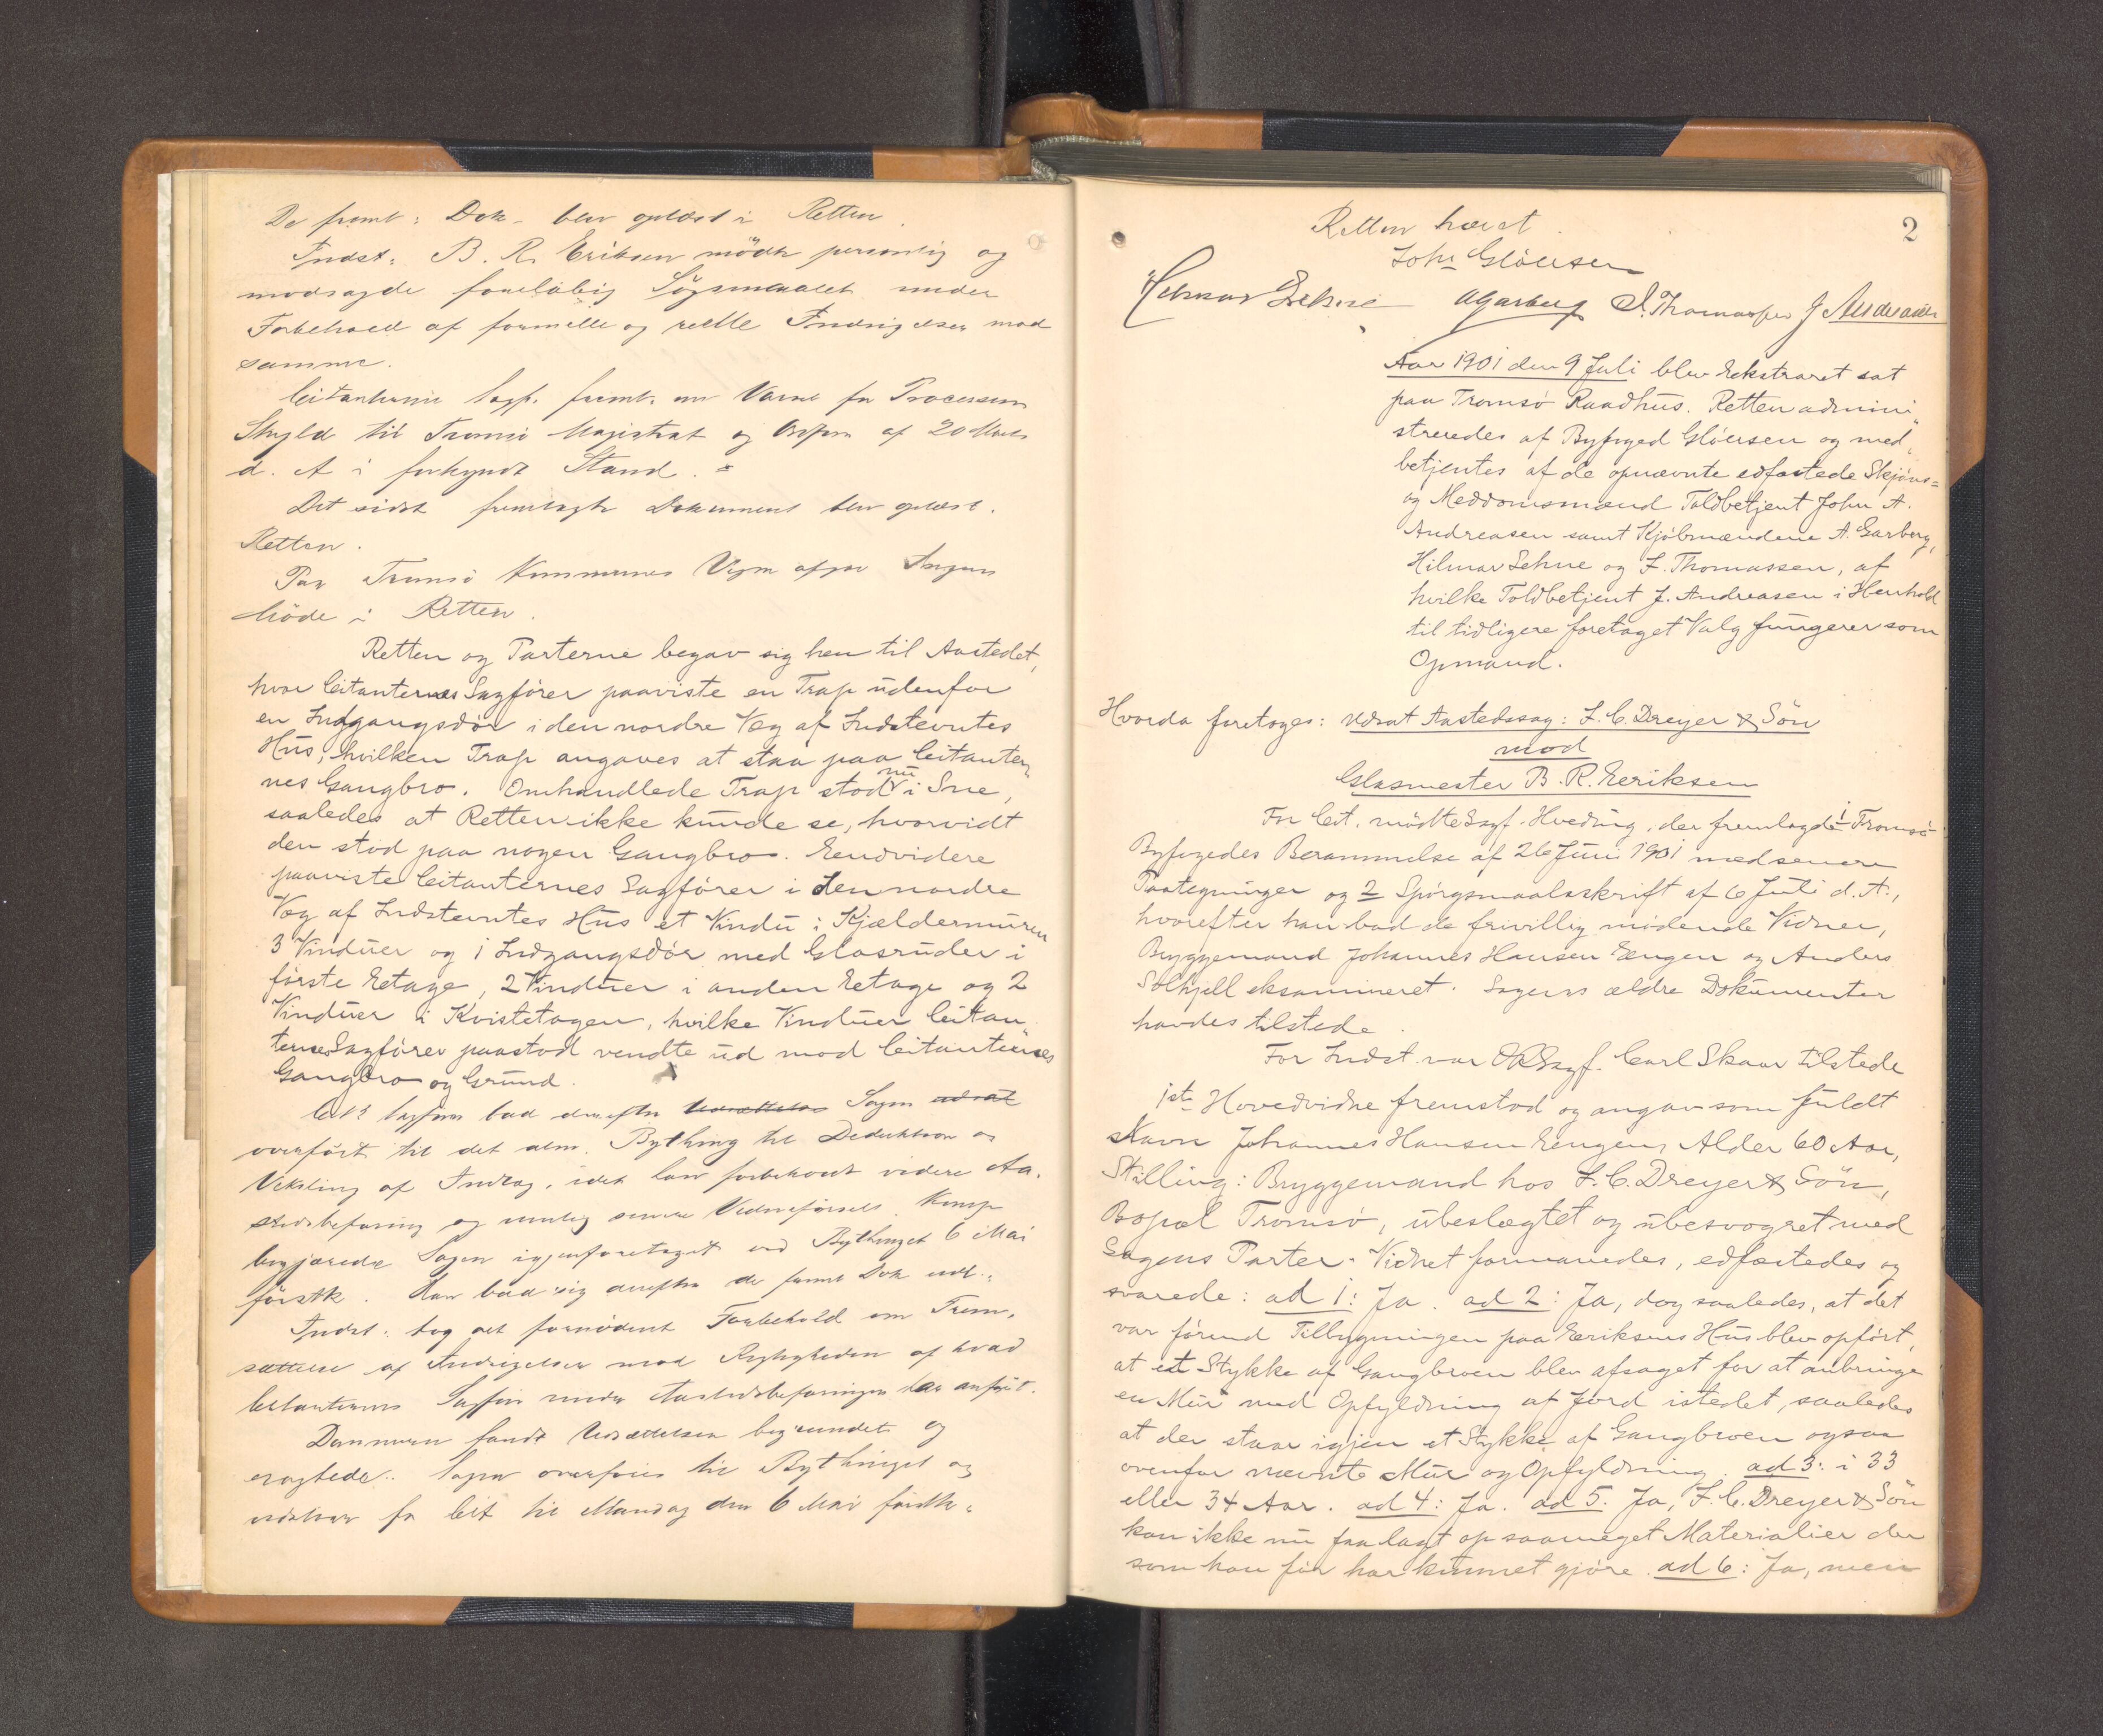 De fremt: Dok. blev oplæst i Retten.
Indst. B. R. Eriksen mødte personlig og
modsagde foreløbig Søgsmaalet under
Forbehold af formelle og reelle Indsigelser mod
samme.
Citanternes Sagf. fremt. en Varsel fra Processens
Skyld til Tromsø Magistrat og Ordføren af 20 Marts
d. A. i forkyndt Stand.
Det sidst fremlagte Dokument blev oplæst.
Retten.
Paa Tromsø Kommunes Vegne afgav Ingen
Møde i Retten.
Retten og Parterne begav sig hen til Aastedet,
hvor Citanternes Sagfører paaviste en Trap udenfor
en Indgangsdør i den nordre Væg af Indstevntes
Hus, hvilken Trap angaves at staa paa Citanter,,
nes Gangbro. Omhandlede Trap stod nu i Sne,
saaledes at Retten ikke kunde se, hvorvidt
den stod paa nogen Gangbro. Endvidere
paaviste Citanternes Sagfører i den nordre
Væg af Indstevntes Hus et Vindu i Kjældermuren
3 Vinduer og 1 Indgangsdør med Glasruder i
første Etage, 2 Vinduer i anden Etage og 2
Vinduer i Kvistetagen, hvilke Vinduer Citan,,
ternes Sagfører paastod vendte ud mod Citanternes
Gangbro og Grund.
Cit's Sagfører bad derefter Udsættelse Sagen udsat
overført til det alm. Bything til Deduktion og
Veksling af Indlæg, idet han forbeholdt videre Aa,
stedsbefaring og mulig senere Vidneførsel. Komp.
begjærede Sagen igjenforetaget ved Bythinget 6 Mai
førstk. Han bad sig derefter de fremt Dok udl.
Indst. tog det fornødne Forbehold om Frem,
sættelse af Indsigelser mod Rigtigheden af hvad
Citanternes Sagfører under Aastedsbefaringen har anført.
Dommeren fandt Udsættelsen begrundet og
eragtede: Sagen overføres til Bythinget og
udstaar for Cit til Mandag den 6 Mai førstk.
2
Retten hævet.
Johs Gløersen
Hilmar Sehne A Garberg I. Thomassen J Andreasen
Aar 1901 den 9 Juli blev Ekstraret sat
paa Tromsø Raadhus. Retten admini,,
streredes af Byfoged Gløersen og med,,
betjentes af de opnævnte edfæstede Skjøns=
og Meddomsmænd Toldbetjent John A.
Andreasen samt Kjøbmændene A. Garberg,
Hilmar Sehne og I. Thomassen, af
hvilke Toldbetjent J. Andreasen i Henhold
til tidligere foretaget Valg fungerer som
Opmand.
Hvorda foretoges: udsat Aastedssag: I. C. Dreyer & Søn
mod
Glasmester B. R. Eriksen
For Cit. mødte Sagf. Hveding, der fremlagde 1 Tromsø
Byfogedes Berammelse af 26 Juni 1901 med senere
Paategninger og 2 Spørgsmaalsskrift af 6 Juli d. A.,
hvorefter han bad de frivillig mødende Vidner,
Bryggemand Johannes Hansen Engen og Anders
Solhjell eksamineret. Sagens ældre Dokumenter
havdes tilstede.
For Indst. var ORSagf. Carl Skaar tilstede
1ste Hovedvidne fremstod og angav som fuldt
Navn Johannes Hansen Engen, Alder 60 Aar,
Stilling: Bryggemand hos I. C. Dreyer & Søn,
Bopæl Tromsø, ubeslægtet og ubesvogret med
Sagens Parter. Vidnet formanedes, edfæstedes og
svarede: ad 1: Ja. ad 2: Ja, dog saaledes, at det
var førend Tilbygningen paa Eriksens Hus blev opført,
at et Stykke af Gangbroen blev afsaget for at anbringe
en Mur med Opfyldning af Jord istedet, saaledes
at der staar igjen et Stykke af Gangbroen ogsaa
ovenfor nævnte Mur og Opfyldning. ad 3: i 33
eller 34 Aar. ad 4: Ja. ad 5. Ja, I. C. Dreyer & Søn
kan ikke nu faa lagt op saameget Materialier der
som han før har kunnet gjøre. ad 6: Ja, men